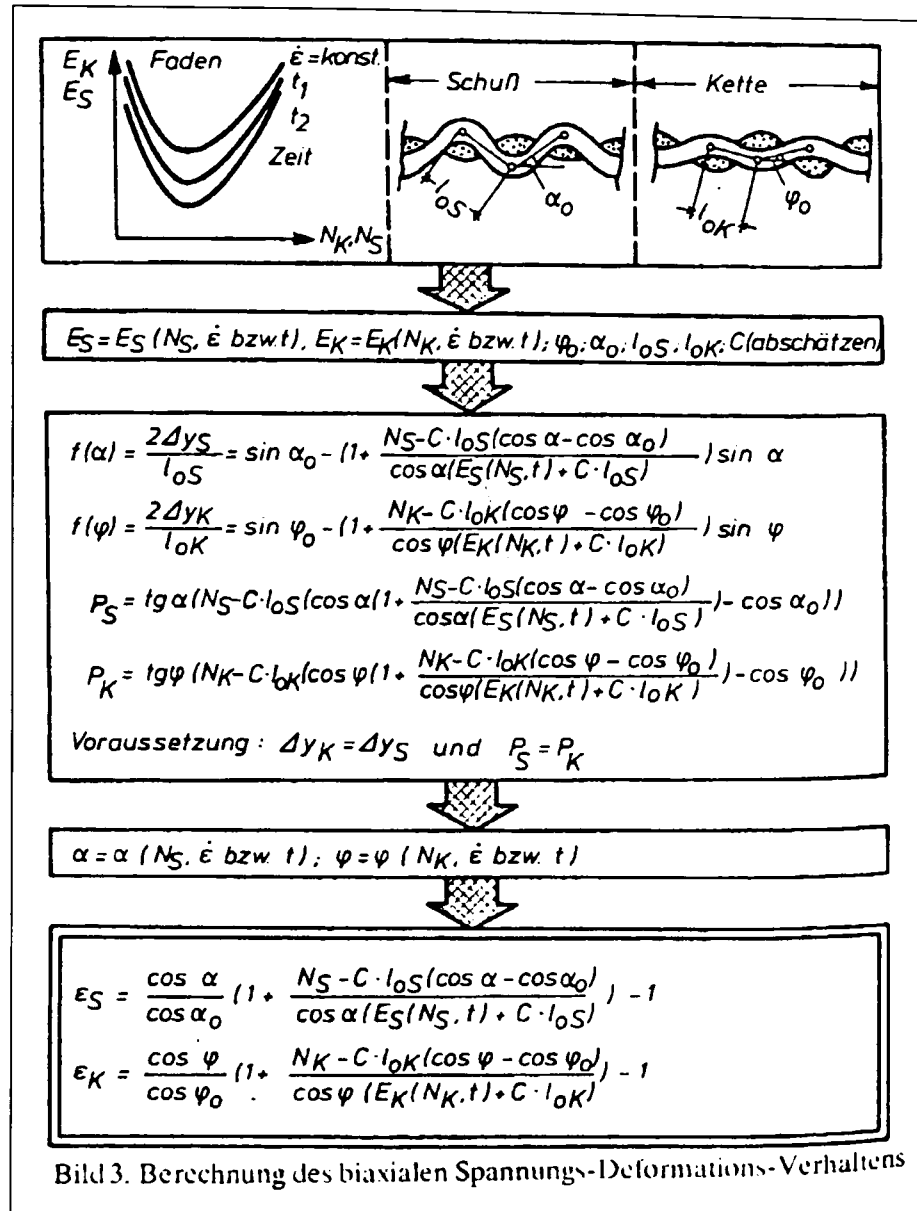 E_K Faden ε̇=konst.
E_S t_1
t_2
Zeit
N_K, N_S
Schuß
l_oS α_o
Kette
l_oK φ_o
E_S = E_S (N_S, ε̇ bzw. t), E_K = E_K(N_K, ε̇ bzw. t); φ_o; α_o; l_oS, l_oK; C(abschätzen)
f(α) = 2Δy_S / l_oS = sin α_o - (1 + (N_S - C·l_oS(cos α - cos α_o)) / (cos α(E_S(N_S, t) + C·l_oS))) sin α
f(φ) = 2Δy_K / l_oK = sin φ_o - (1 + (N_K - C·l_oK(cos φ - cos φ_o)) / (cos φ(E_K(N_K, t) + C·l_oK))) sin φ
P_S = tg α(N_S - C·l_oS(cos α(1 + (N_S - C·l_oS(cos α - cos α_o)) / (cos α(E_S(N_S, t) + C·l_oS))) - cos α_o))
P_K = tg φ (N_K - C·l_oK(cos φ(1 + (N_K - C·l_oK(cos φ - cos φ_o)) / (cos φ(E_K(N_K, t) + C·l_oK))) - cos φ_o))
Voraussetzung : Δy_K = Δy_S und P_S = P_K
α = α (N_S, ε̇ bzw. t); φ = φ (N_K, ε̇ bzw. t)
ε_S = cos α / cos α_o (1 + (N_S - C·l_oS(cos α - cos α_o)) / (cos α(E_S(N_S, t) + C·l_oS))) - 1
ε_K = cos φ / cos φ_o (1 + (N_K - C·l_oK(cos φ - cos φ_o)) / (cos φ (E_K(N_K, t) + C·l_oK))) - 1
Bild 3. Berechnung des biaxialen Spannungs-Deformations-Verhaltens